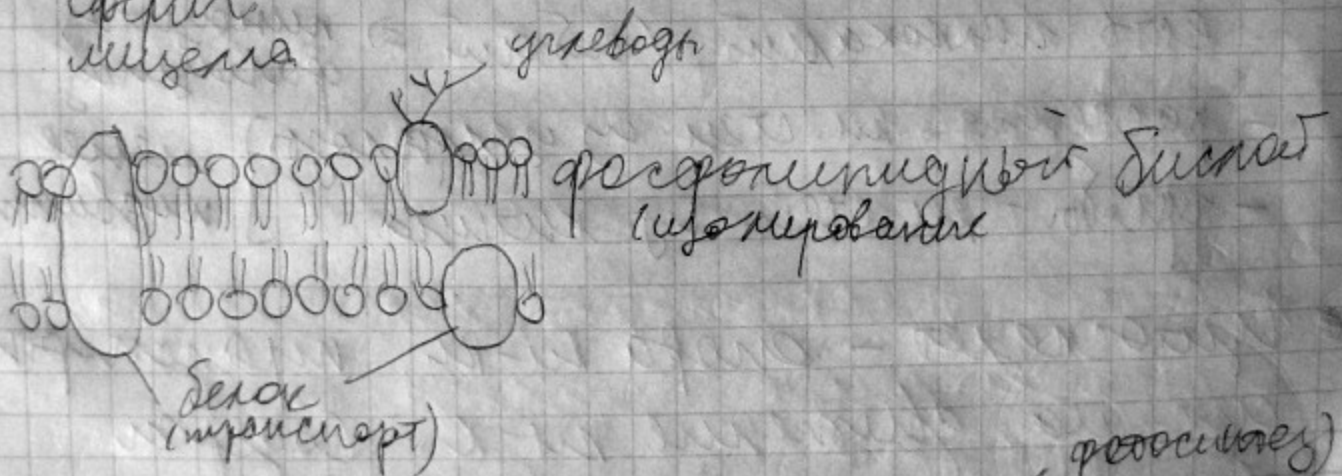 мицелла
углеводы
фосфолипидный бислой
(изолирование
белок
(транспорт)
фотосинтез)